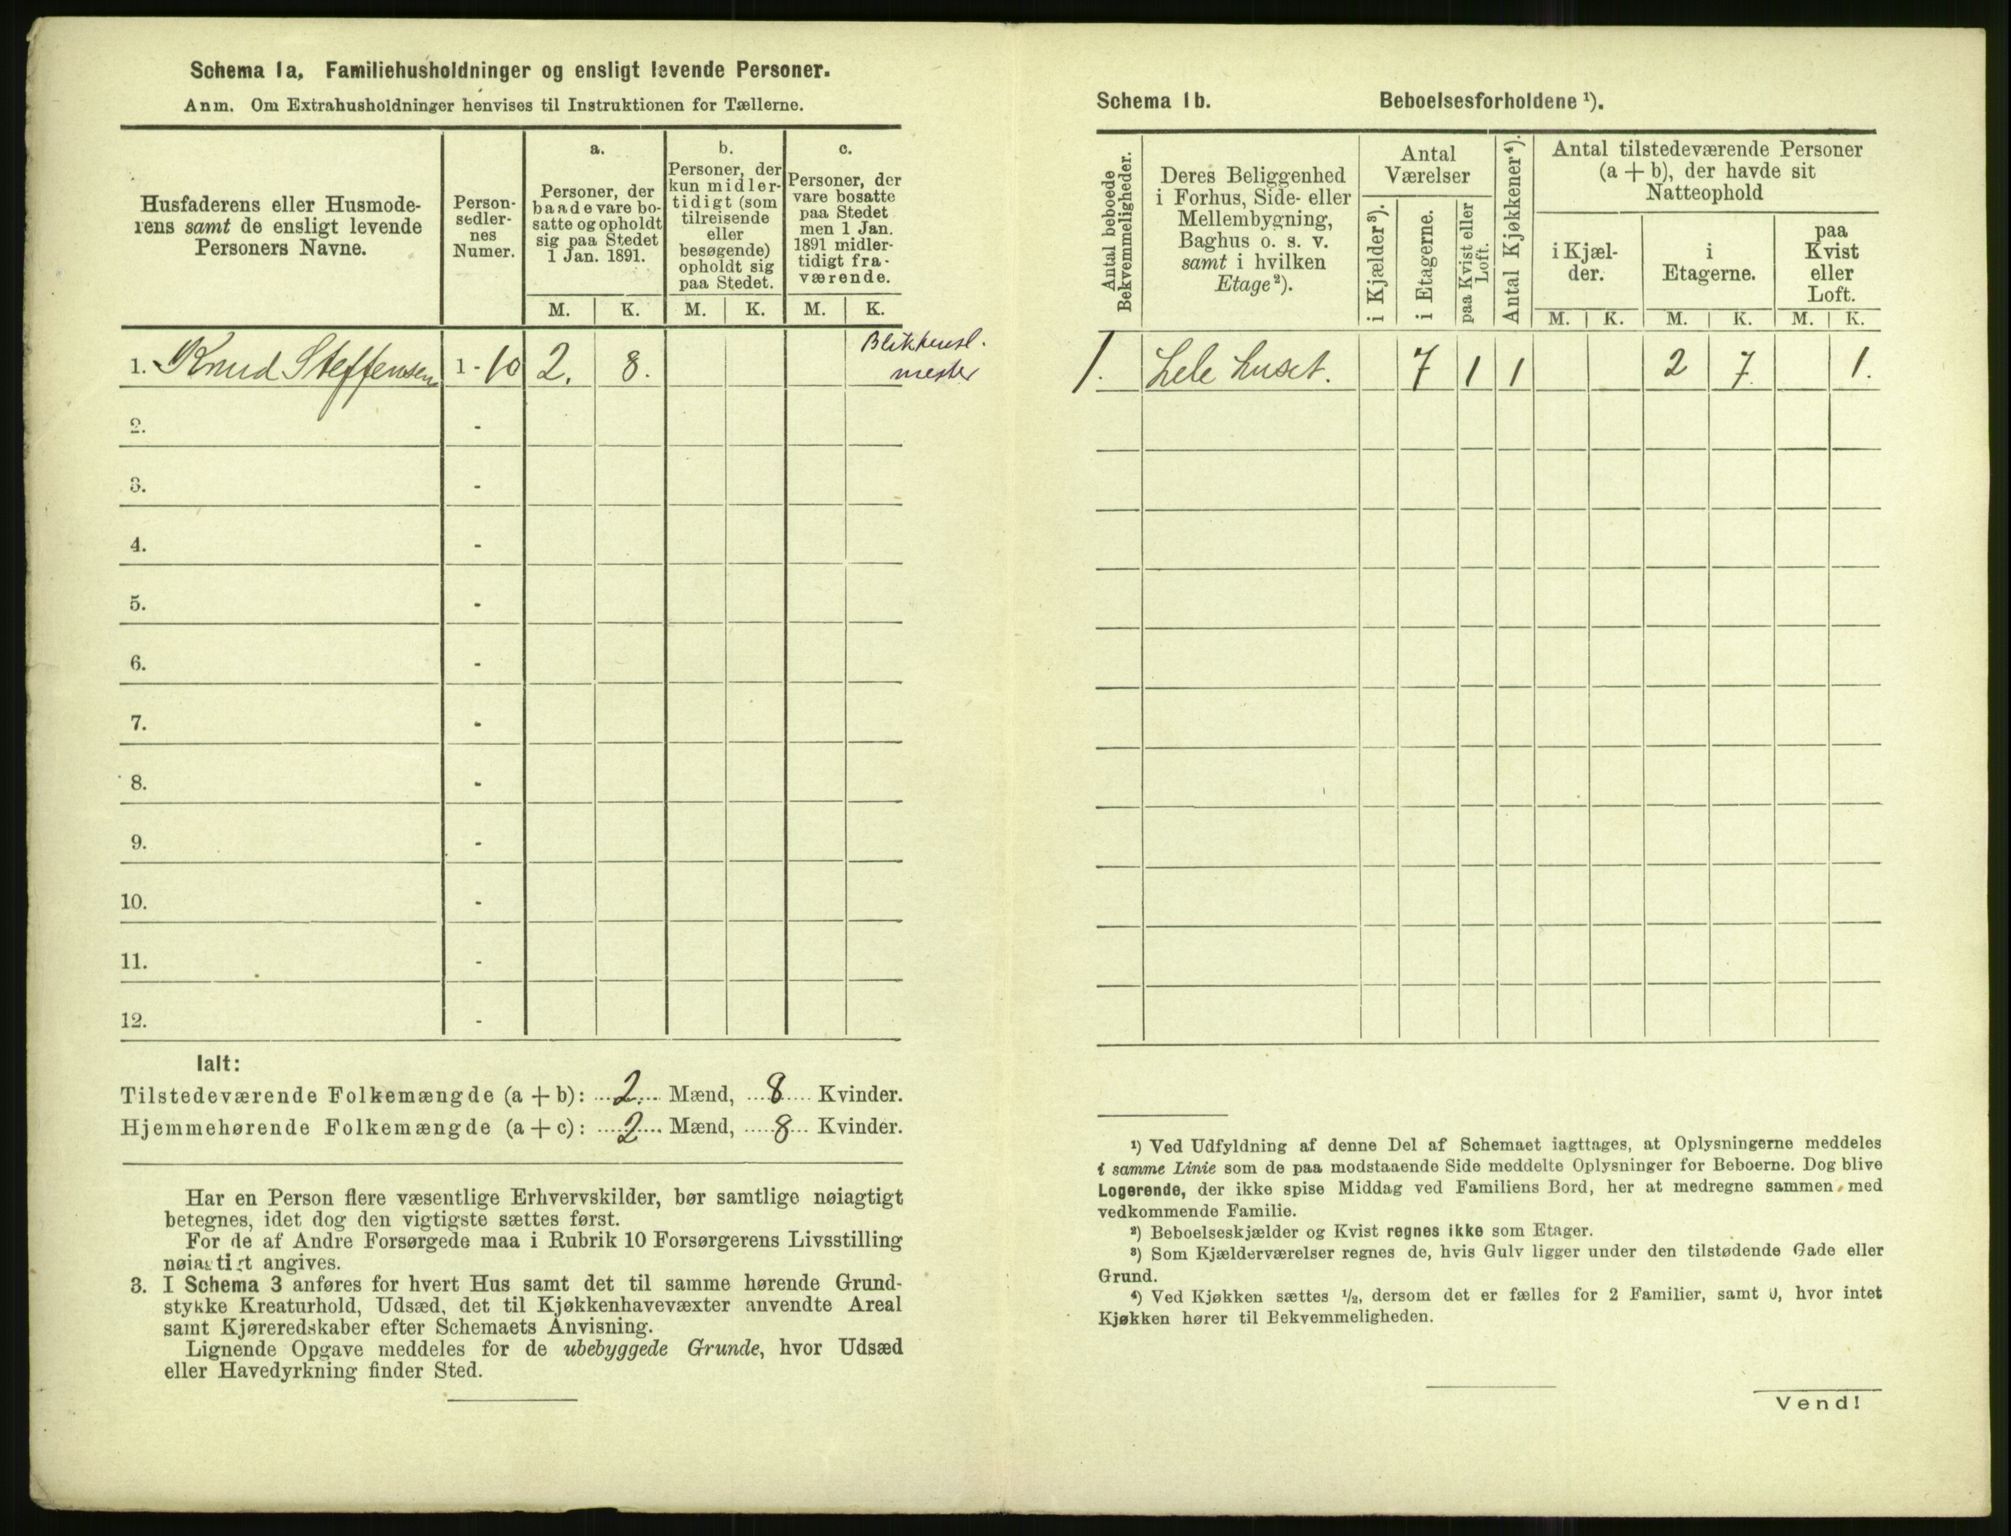 Schema 1a. Familiehusholdninger og ensligt levende Personer.
Anm. Om Extrahusholdninger henvises til Instruktionen for Tællerne.
Husfaderens eller Husmode-
rens samt de ensligt levende
Personers Navne.
Person-
sedler-
nes
Numer.
a.
Personer, der
baade vare bo-
satte og opholdt
sig paa Stedet
1 Jan. 1891.
b.
Personer, der
kun midler-
tidigt (som
tilreisende
eller
besøgende)
opholdt sig
paa Stedet.
c.
Personer, der
vare bosatte
paa Stedet
men 1 Jan.
1891 midler-
tidigt fra-
værende.
M. K. M. K. M. K.
1. Knud Steffensen 1 - 10 2. 8. Blikkensl.
mester
2. -
3. -
4. -
5. -
6. -
7. -
8. -
9. -
10. -
11. -
12. -
Ialt:
Tilstedeværende Folkemængde (a + b): 2. Mænd, 8 Kvinder.
Hjemmehørende Folkemængde (a + c): 2 Mænd, 8 Kvinder.
Har en Person flere væsentlige Erhvervskilder, bør samtlige nøiagtigt
betegnes, idet dog den vigtigste sættes først.
For de af Andre Forsørgede maa i Rubrik 10 Forsørgerens Livsstilling
nøiagtigt angives.
3. I Schema 3 anføres for hvert Hus samt det til samme hørende Grund-
stykke Kreaturhold, Udsæd, det til Kjøkkenhavevæxter anvendte Areal
samt Kjøreredskaber efter Schemaets Anvisning.
Lignende Opgave meddeles for de ubebyggede Grunde, hvor Udsæd
eller Havedyrkning finder Sted.
Schema 1b. Beboelsesforholdene ¹).
Antal beboede
Bekvemmeligheder.
Deres Beliggenhed
i Forhus, Side- eller
Mellembygning,
Baghus o. s. v.
samt i hvilken
Etage²).
Antal
Værelser
i Kjælder³).
i Etagerne.
paa Kvist eller
Loft.
Antal Kjøkkener⁴).
Antal tilstedeværende Personer
(a + b), der havde sit
Natteophold
i Kjæl-
der.
i
Etagerne.
paa
Kvist
eller
Loft.
M. K. M. K. M. K.
1. Hele huset. 7 1 1 2 7. 1.
¹) Ved Udfyldning af denne Del af Schemaet iagttages, at Oplysningerne meddeles
i samme Linie som de paa modstaaende Side meddelte Oplysninger for Beboerne. Dog blive
Logerende, der ikke spise Middag ved Familiens Bord, her at medregne sammen med
vedkommende Familie.
²) Beboelseskjælder og Kvist regnes ikke som Etager.
³) Som Kjælderværelser regnes de, hvis Gulv ligger under den tilstødende Gade eller
Grund.
⁴) Ved Kjøkken sættes ½, dersom det er fælles for 2 Familier, samt 0, hvor intet
Kjøkken hører til Bekvemmeligheden.
Vend!